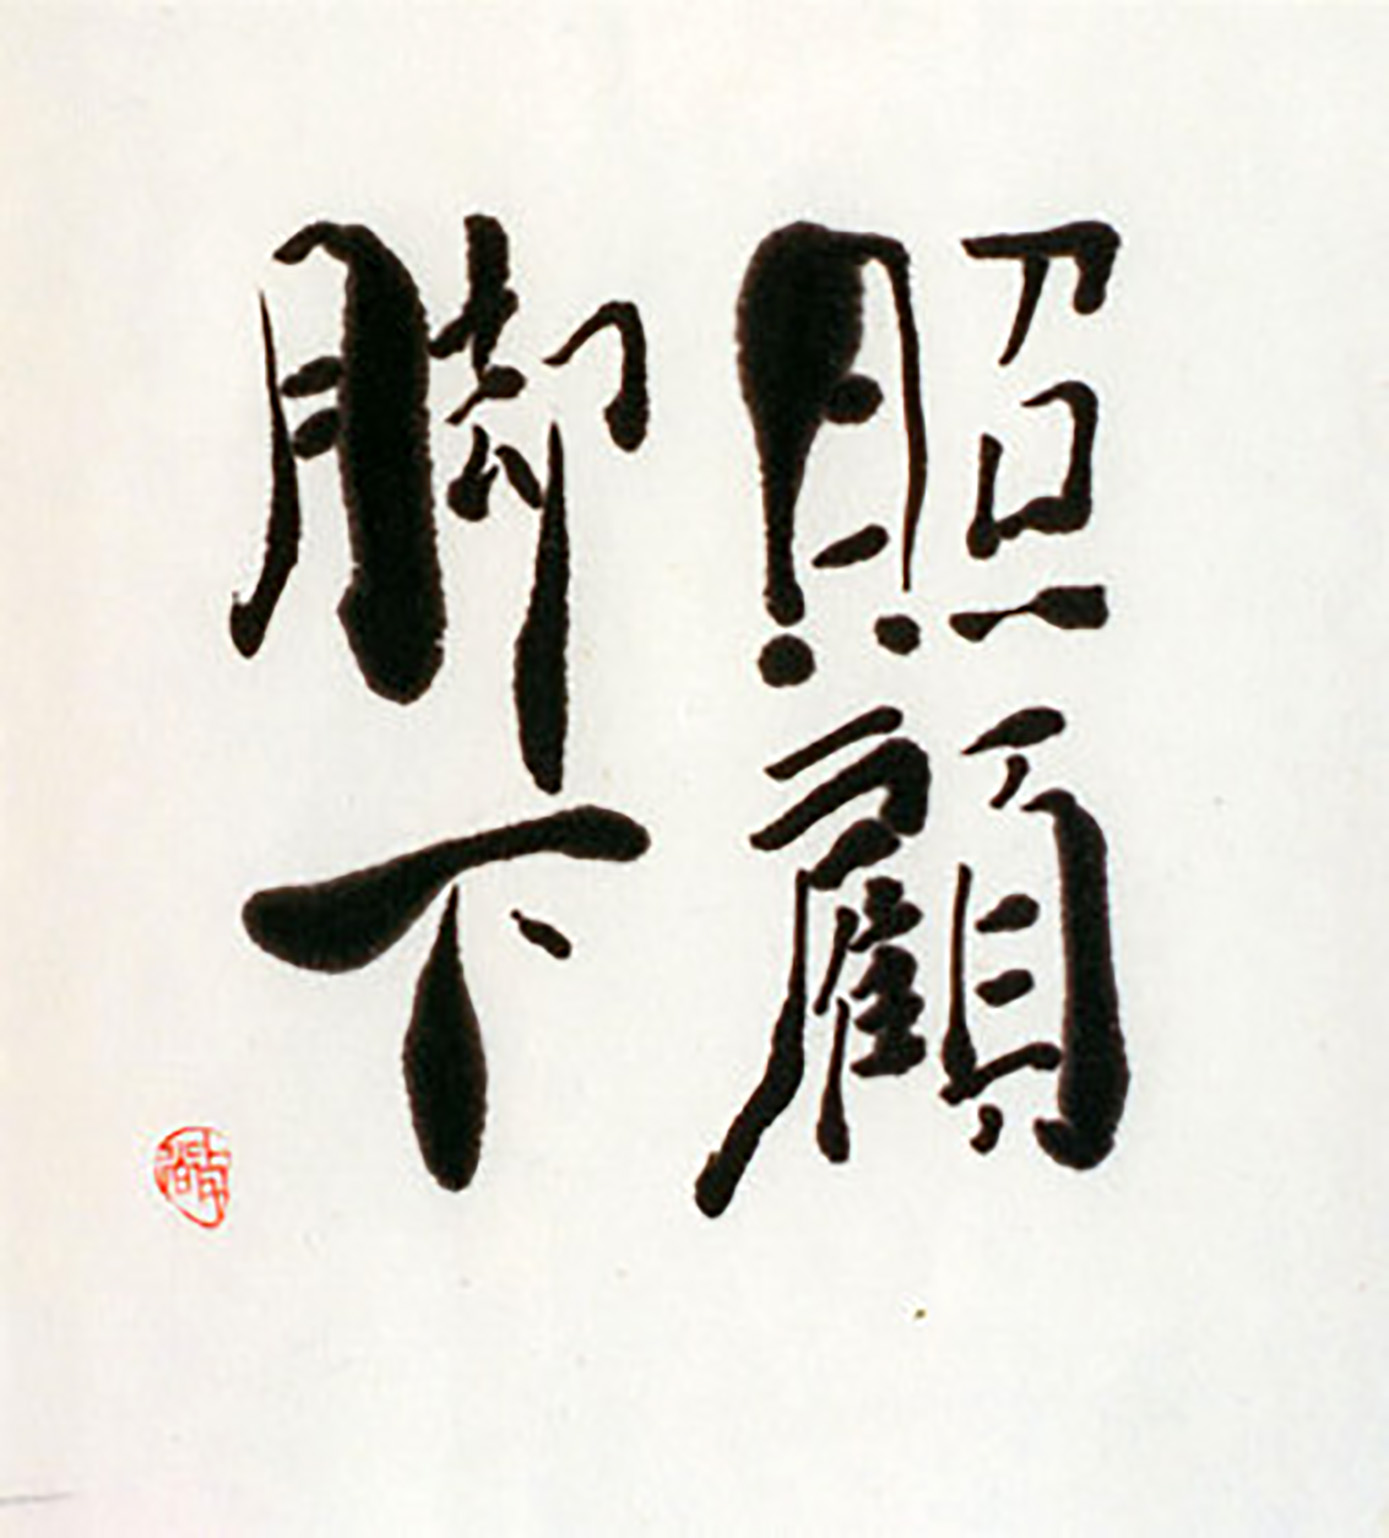 照顧
脚下